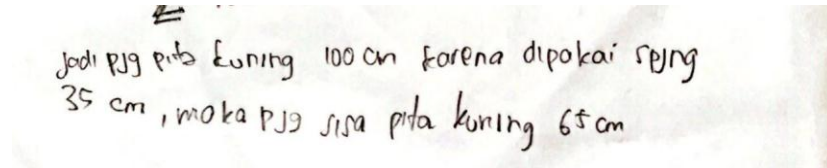 jadi pjg pita kuning 100 cm karena dipakai sepjng
35 cm, maka pjg sisa pita kuning 65 cm